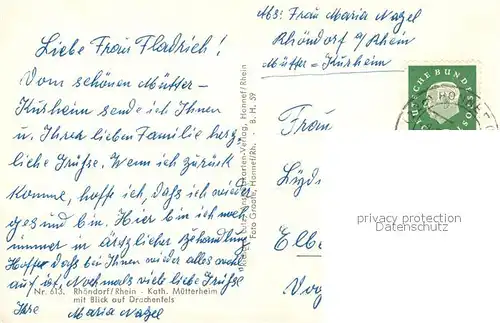 Liebe Frau Fladrich!
Vom schönen Mütter-
Kurheim sende ich Ihnen
u. Ihrer lieben Familie herz-
liche Grüße. Wenn ich zurück
komme, hoffe ich, daß ich wieder
gesund bin. Hier bin ich noch
immer in ärztlicher Behandlung
Hoffe daß bei Ihnen wieder alles wohl-
auf ist. Nochmals viele liebe Grüße
Ihre Maria Nagel
Nr. 613. Rhöndorf/Rhein - Kath. Mütterheim
mit Blick auf Drachenfels
Verlag, Honnef/Rhein
Foto Groote, Honnef/Rh. - B. H. 59
Abs: Frau Maria Nagel
Rhöndorf a/Rhein
Mütter-Kurheim
DEUTSCHE BUNDESPOST
Frau
Lyd
Elb
Vog
privacy protection
Datenschutz